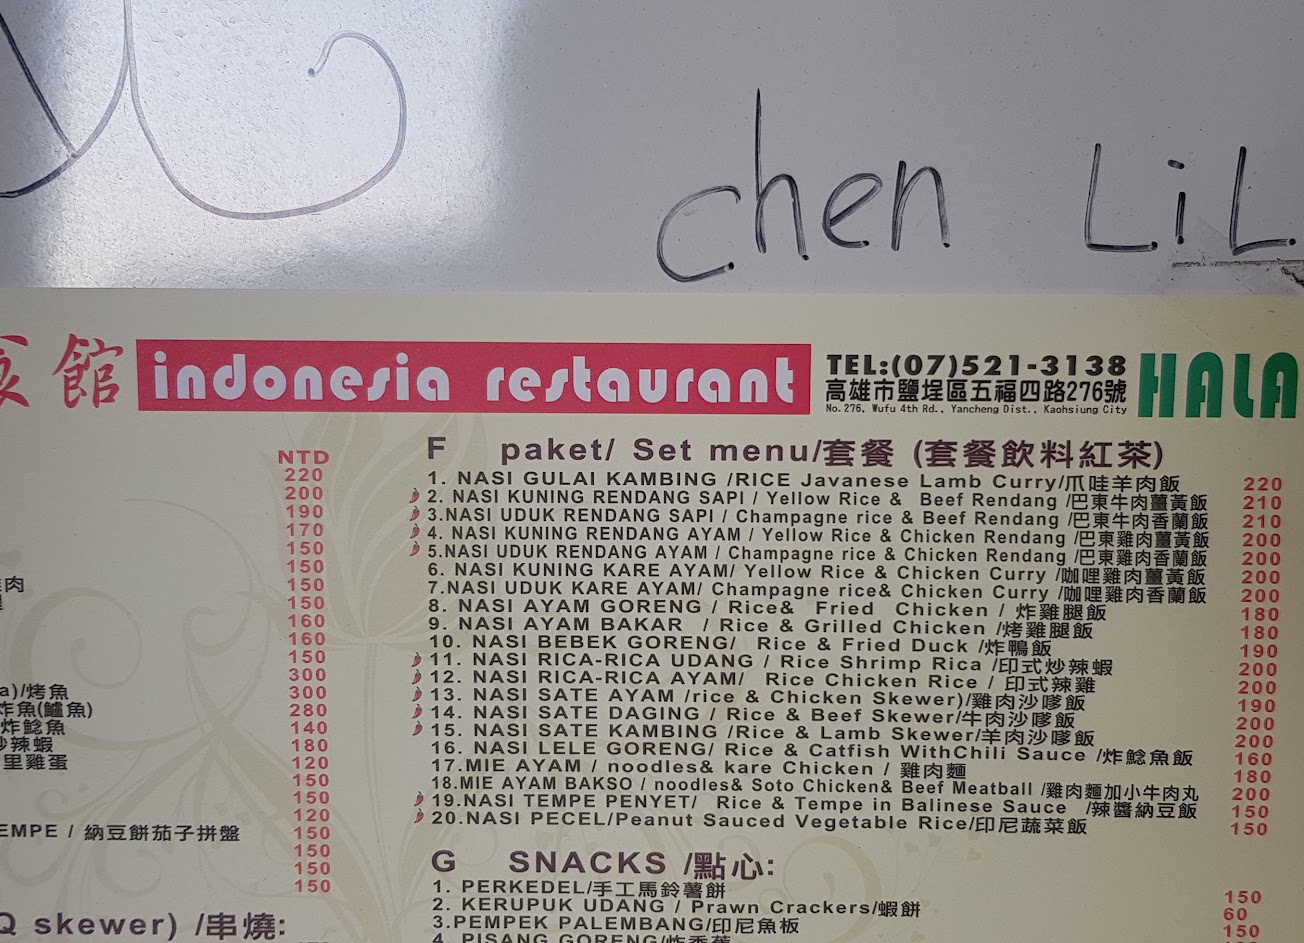 chen LiL
食館 indonesia restaurant TEL:(07)521-3138 HALA
高雄市鹽埕區五福四路276號
No.276, Wufu 4th Rd., Yancheng Dist., Kaohsiung City
NTD
220
200
190
170
150
150
150
150
160
160
150
300
a)/烤魚 300
炸魚(鱸魚) 280
炸鯰魚 140
辣蝦 180
里雞蛋 120
150
150
120
EMPE / 納豆餅茄子拼盤 150
150
150
150
Q skewer) /串燒:
F paket/ Set menu/套餐 (套餐飲料紅茶)
1. NASI GULAI KAMBING /RICE Javanese Lamb Curry/爪哇羊肉飯 220
2. NASI KUNING RENDANG SAPI / Yellow Rice & Beef Rendang /巴東牛肉薑黃飯 210
3.NASI UDUK RENDANG SAPI / Champagne rice & Beef Rendang /巴東牛肉香蘭飯 210
4. NASI KUNING RENDANG AYAM / Yellow Rice & Chicken Rendang /巴東雞肉薑黃飯 200
5.NASI UDUK RENDANG AYAM / Champagne rice & Chicken Rendang /巴東雞肉香蘭飯 200
6. NASI KUNING KARE AYAM/ Yellow Rice & Chicken Curry /咖哩雞肉薑黃飯 200
7.NASI UDUK KARE AYAM/ Champagne rice& Chicken Curry /咖哩雞肉香蘭飯 200
8. NASI AYAM GORENG / Rice& Fried Chicken / 炸雞腿飯 180
9. NASI AYAM BAKAR / Rice & Grilled Chicken /烤雞腿飯 180
10. NASI BEBEK GORENG/ Rice & Fried Duck /炸鴨飯 190
11. NASI RICA-RICA UDANG / Rice Shrimp Rica /印式炒辣蝦 200
12. NASI RICA-RICA AYAM/ Rice Chicken Rice / 印式辣雞 200
13. NASI SATE AYAM /rice & Chicken Skewer)/雞肉沙嗲飯 190
14. NASI SATE DAGING / Rice & Beef Skewer/牛肉沙嗲飯 200
15. NASI SATE KAMBING /Rice & Lamb Skewer/羊肉沙嗲飯 200
16. NASI LELE GORENG/ Rice & Catfish WithChili Sauce /炸鯰魚飯 160
17.MIE AYAM / noodles& kare Chicken / 雞肉麵 180
18.MIE AYAM BAKSO / noodles& Soto Chicken& Beef Meatball /雞肉麵加小牛肉丸 200
19.NASI TEMPE PENYET/ Rice & Tempe in Balinese Sauce /辣醬納豆飯 150
20.NASI PECEL/Peanut Sauced Vegetable Rice/印尼蔬菜飯 150
G SNACKS /點心:
1. PERKEDEL/手工馬鈴薯餅 150
2. KERUPUK UDANG / Prawn Crackers/蝦餅 60
3.PEMPEK PALEMBANG/印尼魚板 150
4. PISANG GORENG/炸香蕉